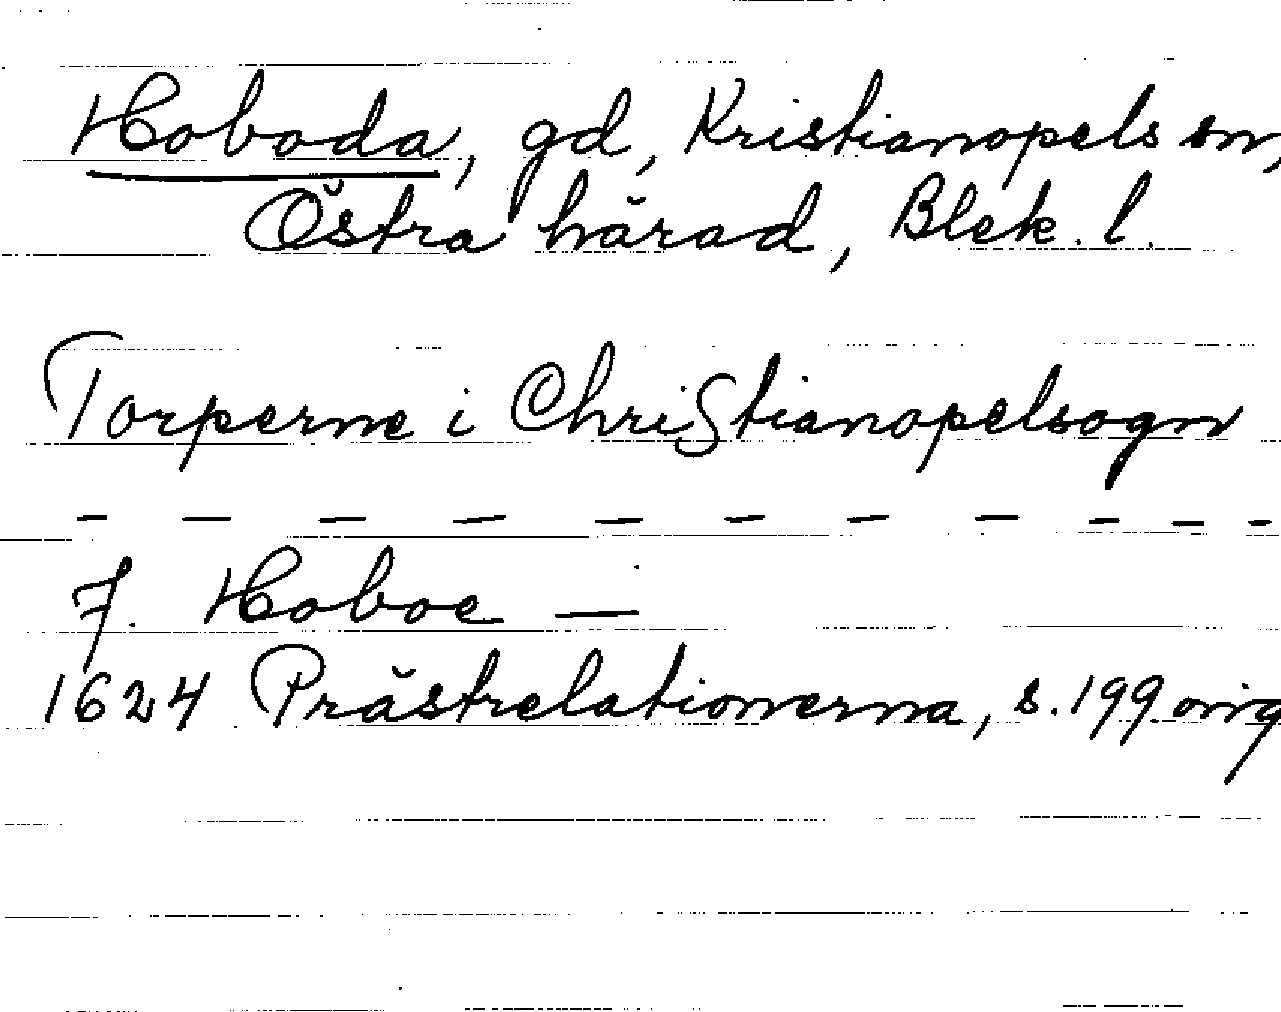 Hoboda, gd, Kristianopels sn,
Östra härad, Blek. l.
Torperne i Christianopelsogn
- - - - - - - - - - -
7. Hoboe —
1624 Prästrelationerna, s. 199 orig